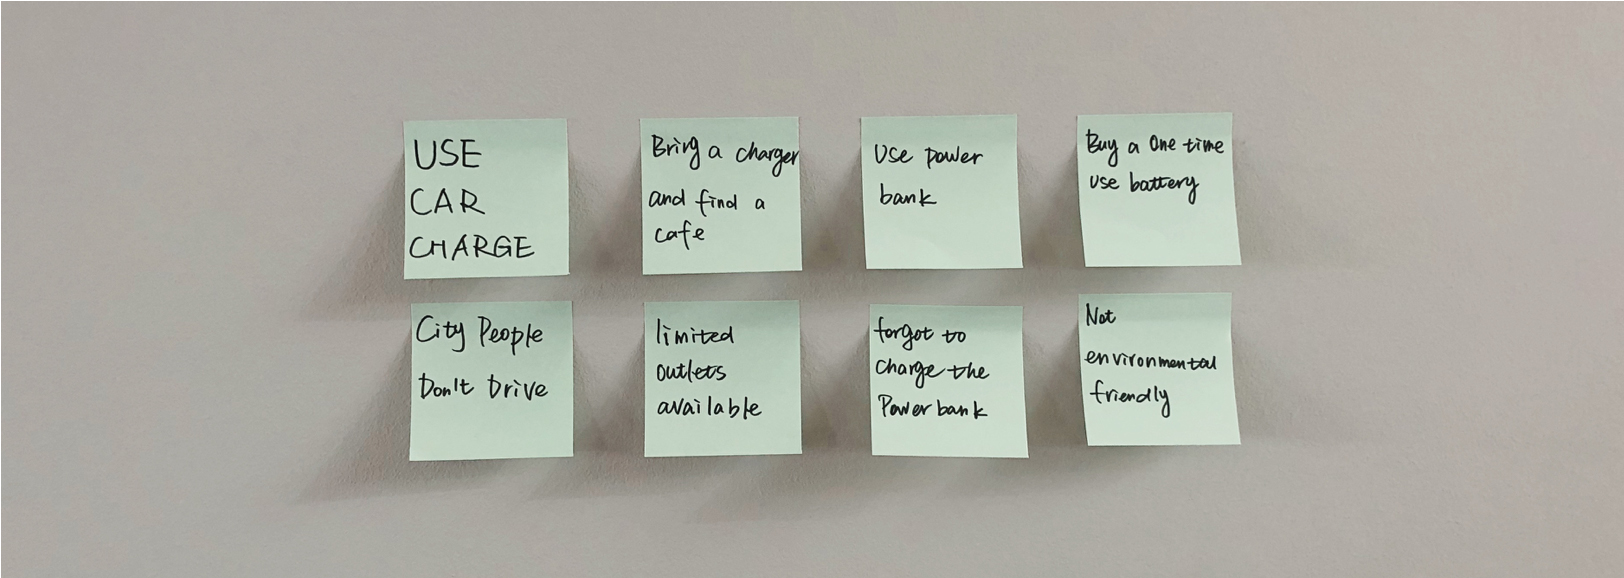 USE
CAR
CHARGE
Bring a charger
and find a
cafe
Use power
bank
Buy a One time
use battery
City People
Don't Drive
limited
outlets
available
forgot to
charge the
Power bank
Not
environmental
friendly